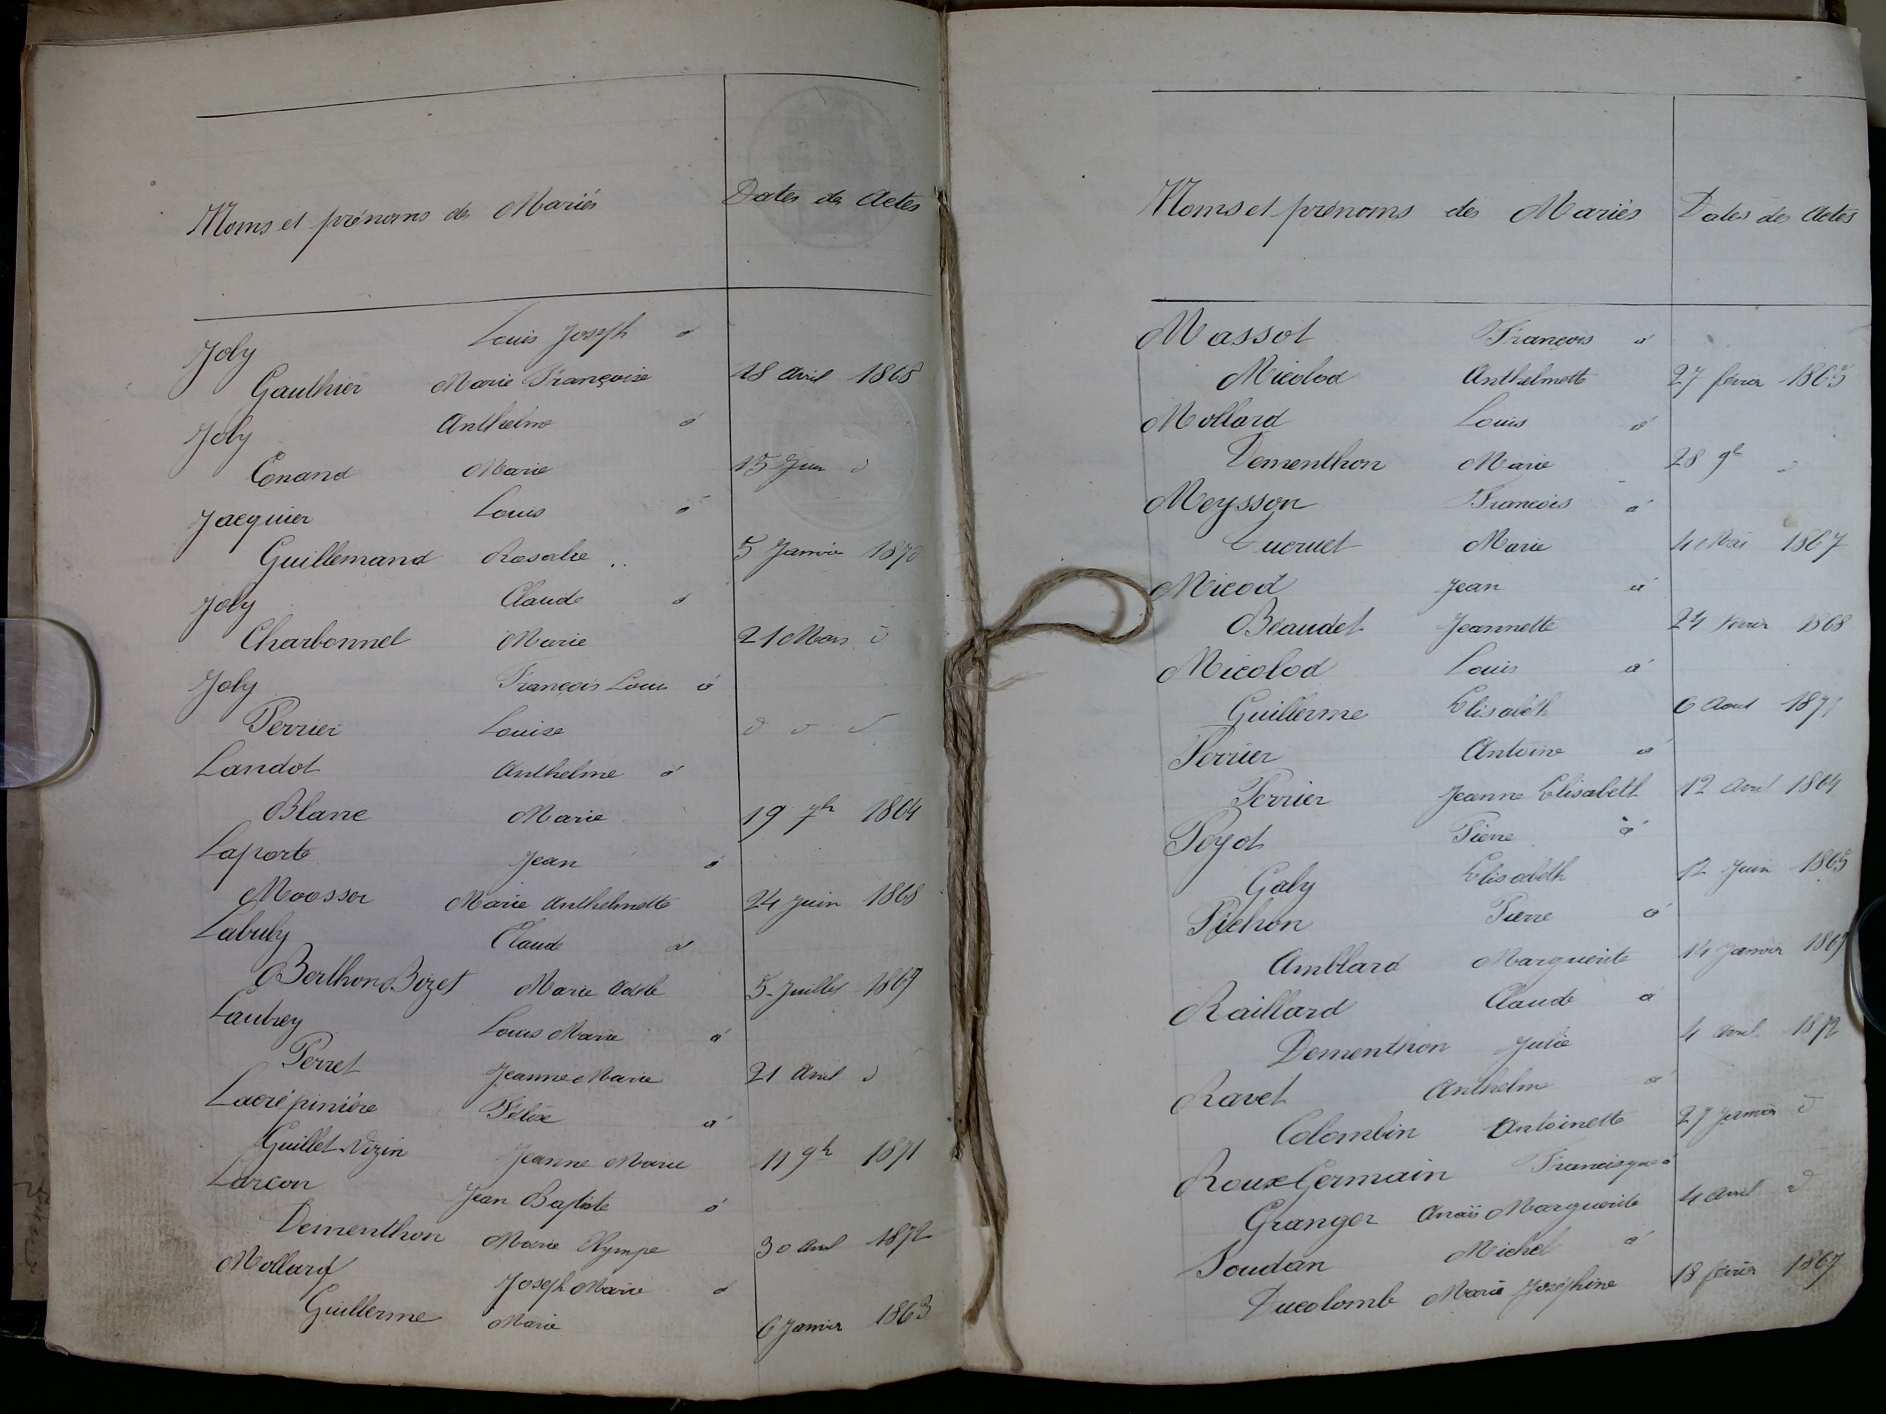 Noms et prénoms des Mariés Dates des Actes
Joly Louis Joseph à
Gauthier Marie Françoise 18 avril 1868
Joly Anthelme à
Conand Marie 15 Juin d
Jacquier Louis à
Guillemand Rosalie 5 Janvier 1870
Joly Claude à
Charbonnel Marie 21 Mars d
Joly François Louis à
Perrier Louise d d d
Landot Anthelme à
Blanc Marie 19 7b 1864
Laporte Jean à
Marie Anthelmette 24 Juin 1868
Labuly Claude à
Berthond Bozet Marie Adèle 5 Juillet 1869
Lautrey Louis Marie à
Perret Jeanne Marie 21 Avril d
Lacrépinière Félix à
Guillet Vizin Jeanne Marie 11 9b 1871
Larçon Jean Baptiste à
Dementhon Marie Olympe 30 Avril 1872
Mollard Joseph Marie à
Guillerme Marie 6 Janvier 1863
Noms et prénoms des Mariés Dates des Actes
Massot François à
Micolod Anthelmette 27 février 1865
Mollard Louis à
Dementhon Marie 28 9b d
Meysson François à
Marie 4 Mai 1867
Micod Jean à
Beaudet Jeannette 24 février 1868
Micolod Louis à
Guillerme Elisabeth 6 Aout 1871
Perrier Antoine à
Perrier Jeanne Elisabeth 12 Avril 1864
Poyet Pierre à
Galy Elisabeth 12 Juin 1865
Pichon Pierre à
Amblard Marguerite 14 Janvier 1869
Raillard Claude à
Dementhon Julie 4 Avril 1872
Ravet Anthelme à
Colombin Antoinette 27 d
Roux Germain Francisque à
Granger Anaïs Marguerite 4 Avril d
Soudan Michel à
Ducolomb Marie Joséphine 18 février 1867